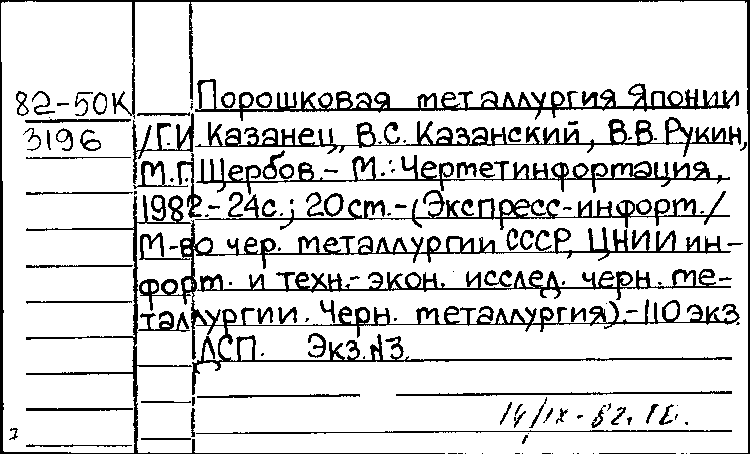 82-50К Порошковая металлургия Японии
3196 /Г.И. Казанец, В.С. Казанский, В.В. Рукин,
М.Г. Щербов.- М.: Черметинформация,
1982.- 24с.; 20см.- (Экспресс-информ./
М-во чер. металлургии СССР, ЦНИИ ин-
форм. и техн.- экон. исслед. черн. ме-
таллургии. Черн. металлургия).- 110 экз.
ДСП. Экз. N3.
14/IX - 82.